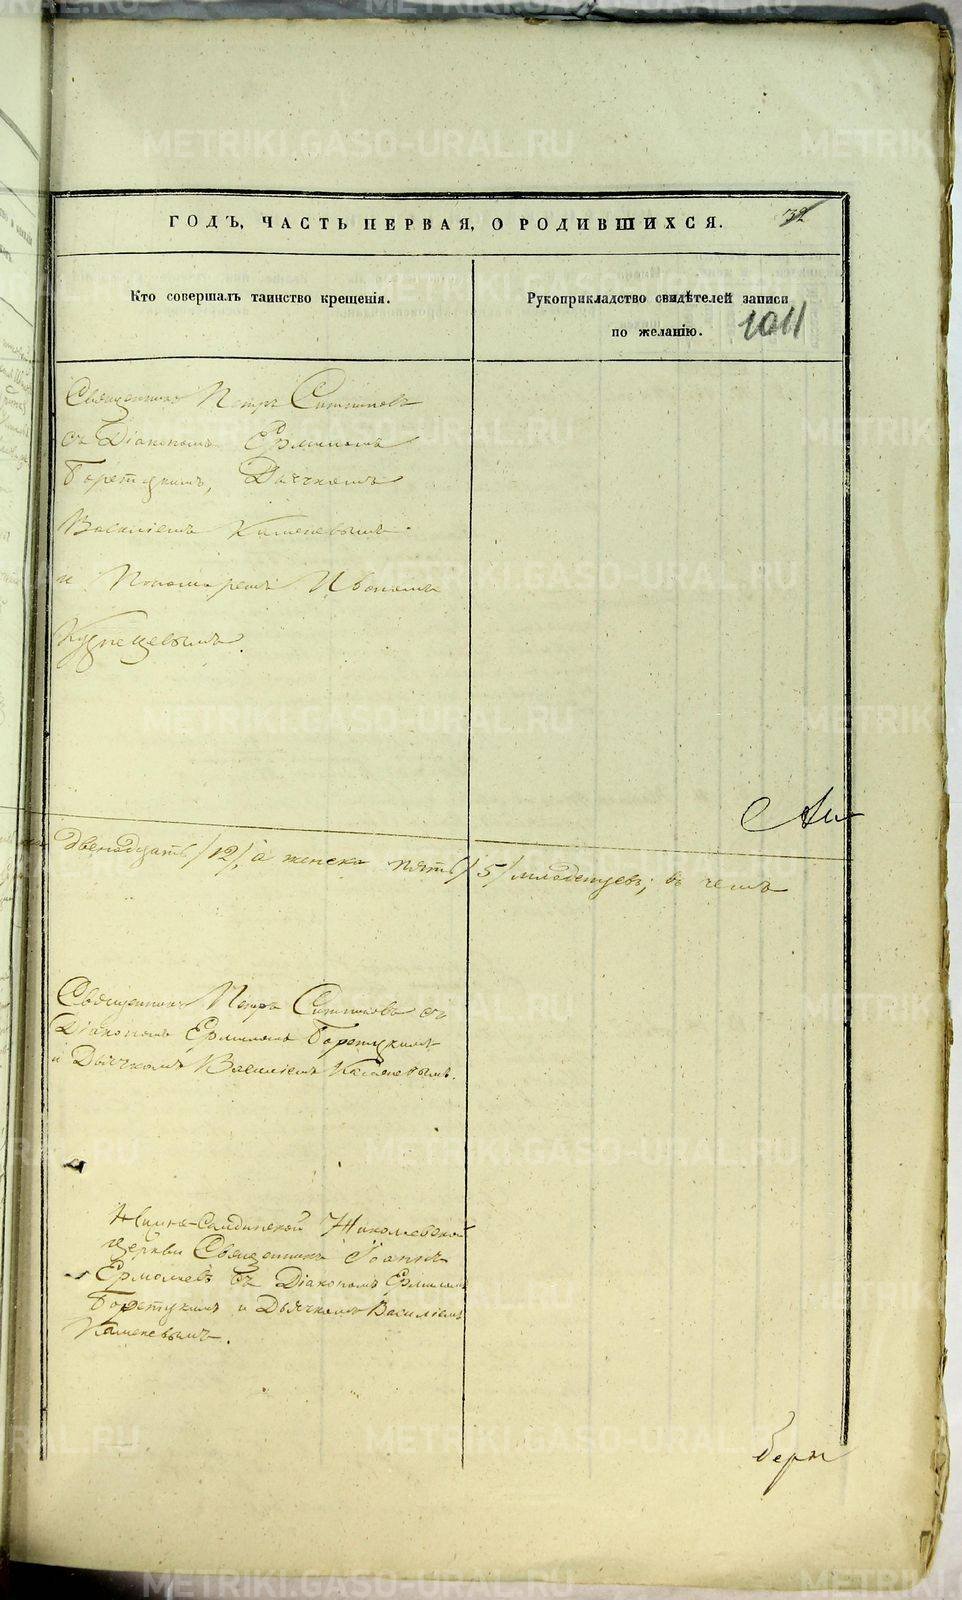 ГОДЪ, ЧАСТЬ ПЕРВАЯ, О РОДИВШИХСЯ. 32
Кто совершалъ таинство крещенія.
Рукоприкладство свидѣтелей записи
по желанію. 1011
Священникъ Петръ Ситниковъ
съ Діакономъ Ермиломъ
Борецкимъ, Дьячкомъ
Василіемъ Каменевымъ
и Пономаремъ Ивономъ
Кузнецовымъ.
двенадцать /12/, а женска пять /5/ младенцевъ; въ чемъ
Священникъ Петръ Ситниковъ съ
Діакономъ Ермиломъ Борецкимъ
и Дьячкомъ Василіемъ Каменевымъ.
Нижне-Салдинской Николаевской
церкви Священникъ Іоаннъ
Ермолаевъ съ Діакономъ Ермиломъ
Борецкимъ и Дьячкомъ Василіемъ
Каменевымъ.
METRIKI.GASO-URAL.RU